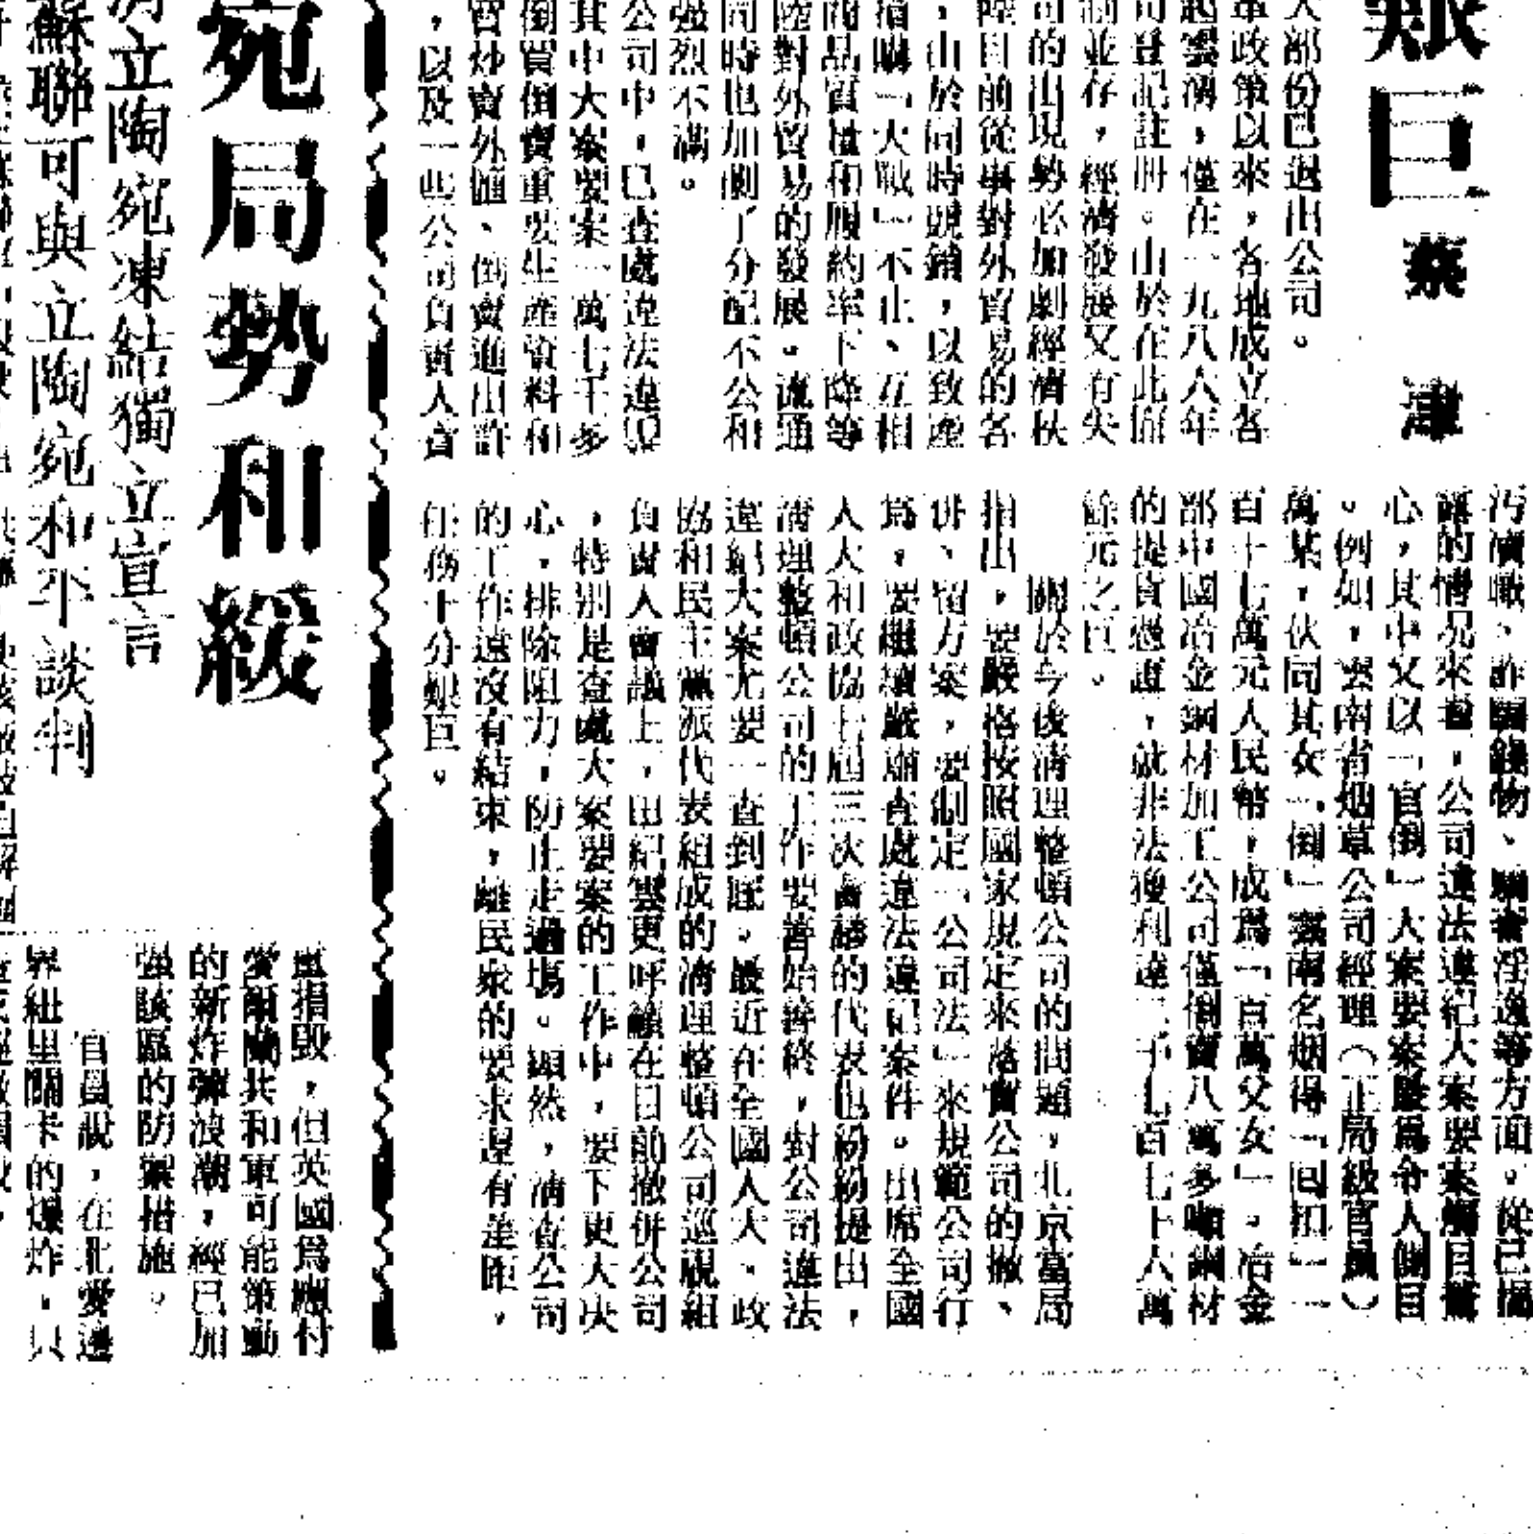 艱巨
蔡 津
大部份已退出公司。
革政策以來，各地成立各
起雲湧，僅在一九八六年
司登記註冊。由於在此個
制並存，經濟發展又有失
司的出現勢必加劇經濟秩
陸目前從事對外貿易的各
，由於同時競銷，以致產
搶購「大戰」不止、互相
商品質量和履約率下降等
陸對外貿易的發展。流通
同時也加劇了分配不公和
强烈不滿。
公司中，已查處違法違
其中大案要案一萬七千多
倒買倒賣重要生產資料和
買炒賣外匯、倒賣進出許
，以及一些公司負責人貪
污瀆職、詐騙錢物、驕奢淫逸等方面。從已揭
的情況來看，公司違法違紀大案要案觸目驚
心，其中又以「官倒」大案要案最爲令人側目
。例如，雲南省烟草公司經理（正局級官員）
萬某，伙同其女「倒」雲南名烟得「回扣」一
百十七萬元人民幣，成爲「百萬父女」。冶金
部中國冶金鋼材加工公司僅倒賣八萬多噸鋼材
的提貨憑證，就非法獲利達二千七百七十八萬
餘元之巨。
關於今後清理整頓公司的問題，北京當局
指出，要嚴格按照國家規定來落實公司的撤、
併、留方案，要制定「公司法」來規範公司行
爲，要繼續嚴肅查處違法違紀案件。出席全國
人大和政協七屆三次會議的代表也紛紛提出，
清理整頓公司的工作要善始善終，對公司違法
違紀大案尤要一查到底。最近在全國人大、政
協和民主黨派代表組成的清理整頓公司巡視組
負責人會議上，田紀雲更呼籲在目前撤併公司
，特別是查處大案要案的工作中，要下更大決
心，排除阻力，防止走過場。顯然，清查公司
的工作遠沒有結束，離民衆的要求還有差距，
任務十分艱巨。
宛局勢和緩
立陶宛凍結獨立宣言
蘇聯可與立陶宛和平談判
重損毀，但英國爲應付
愛爾蘭共和軍可能策動
的新炸彈浪潮，經已加
强該區的防禦措施。
官員說，在北愛邊
界紐里關卡的爆炸，只